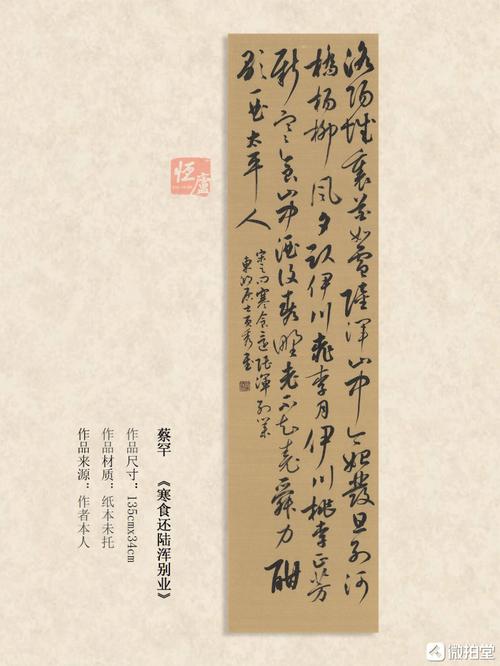 洛陽城裏花如雪陸渾山中今始發旦别河
橋楊柳風夕卧伊川桃李月伊川桃李正芳
新寒食山中酒復春野老不知堯舜力酣
歌一曲太平人
宋之问寒食還陸渾别業
恒廬
蔡罕 《寒食还陆浑别业》
作品尺寸：135cmx34cm
作品材质：纸本未托
作品来源：作者本人
微拍堂